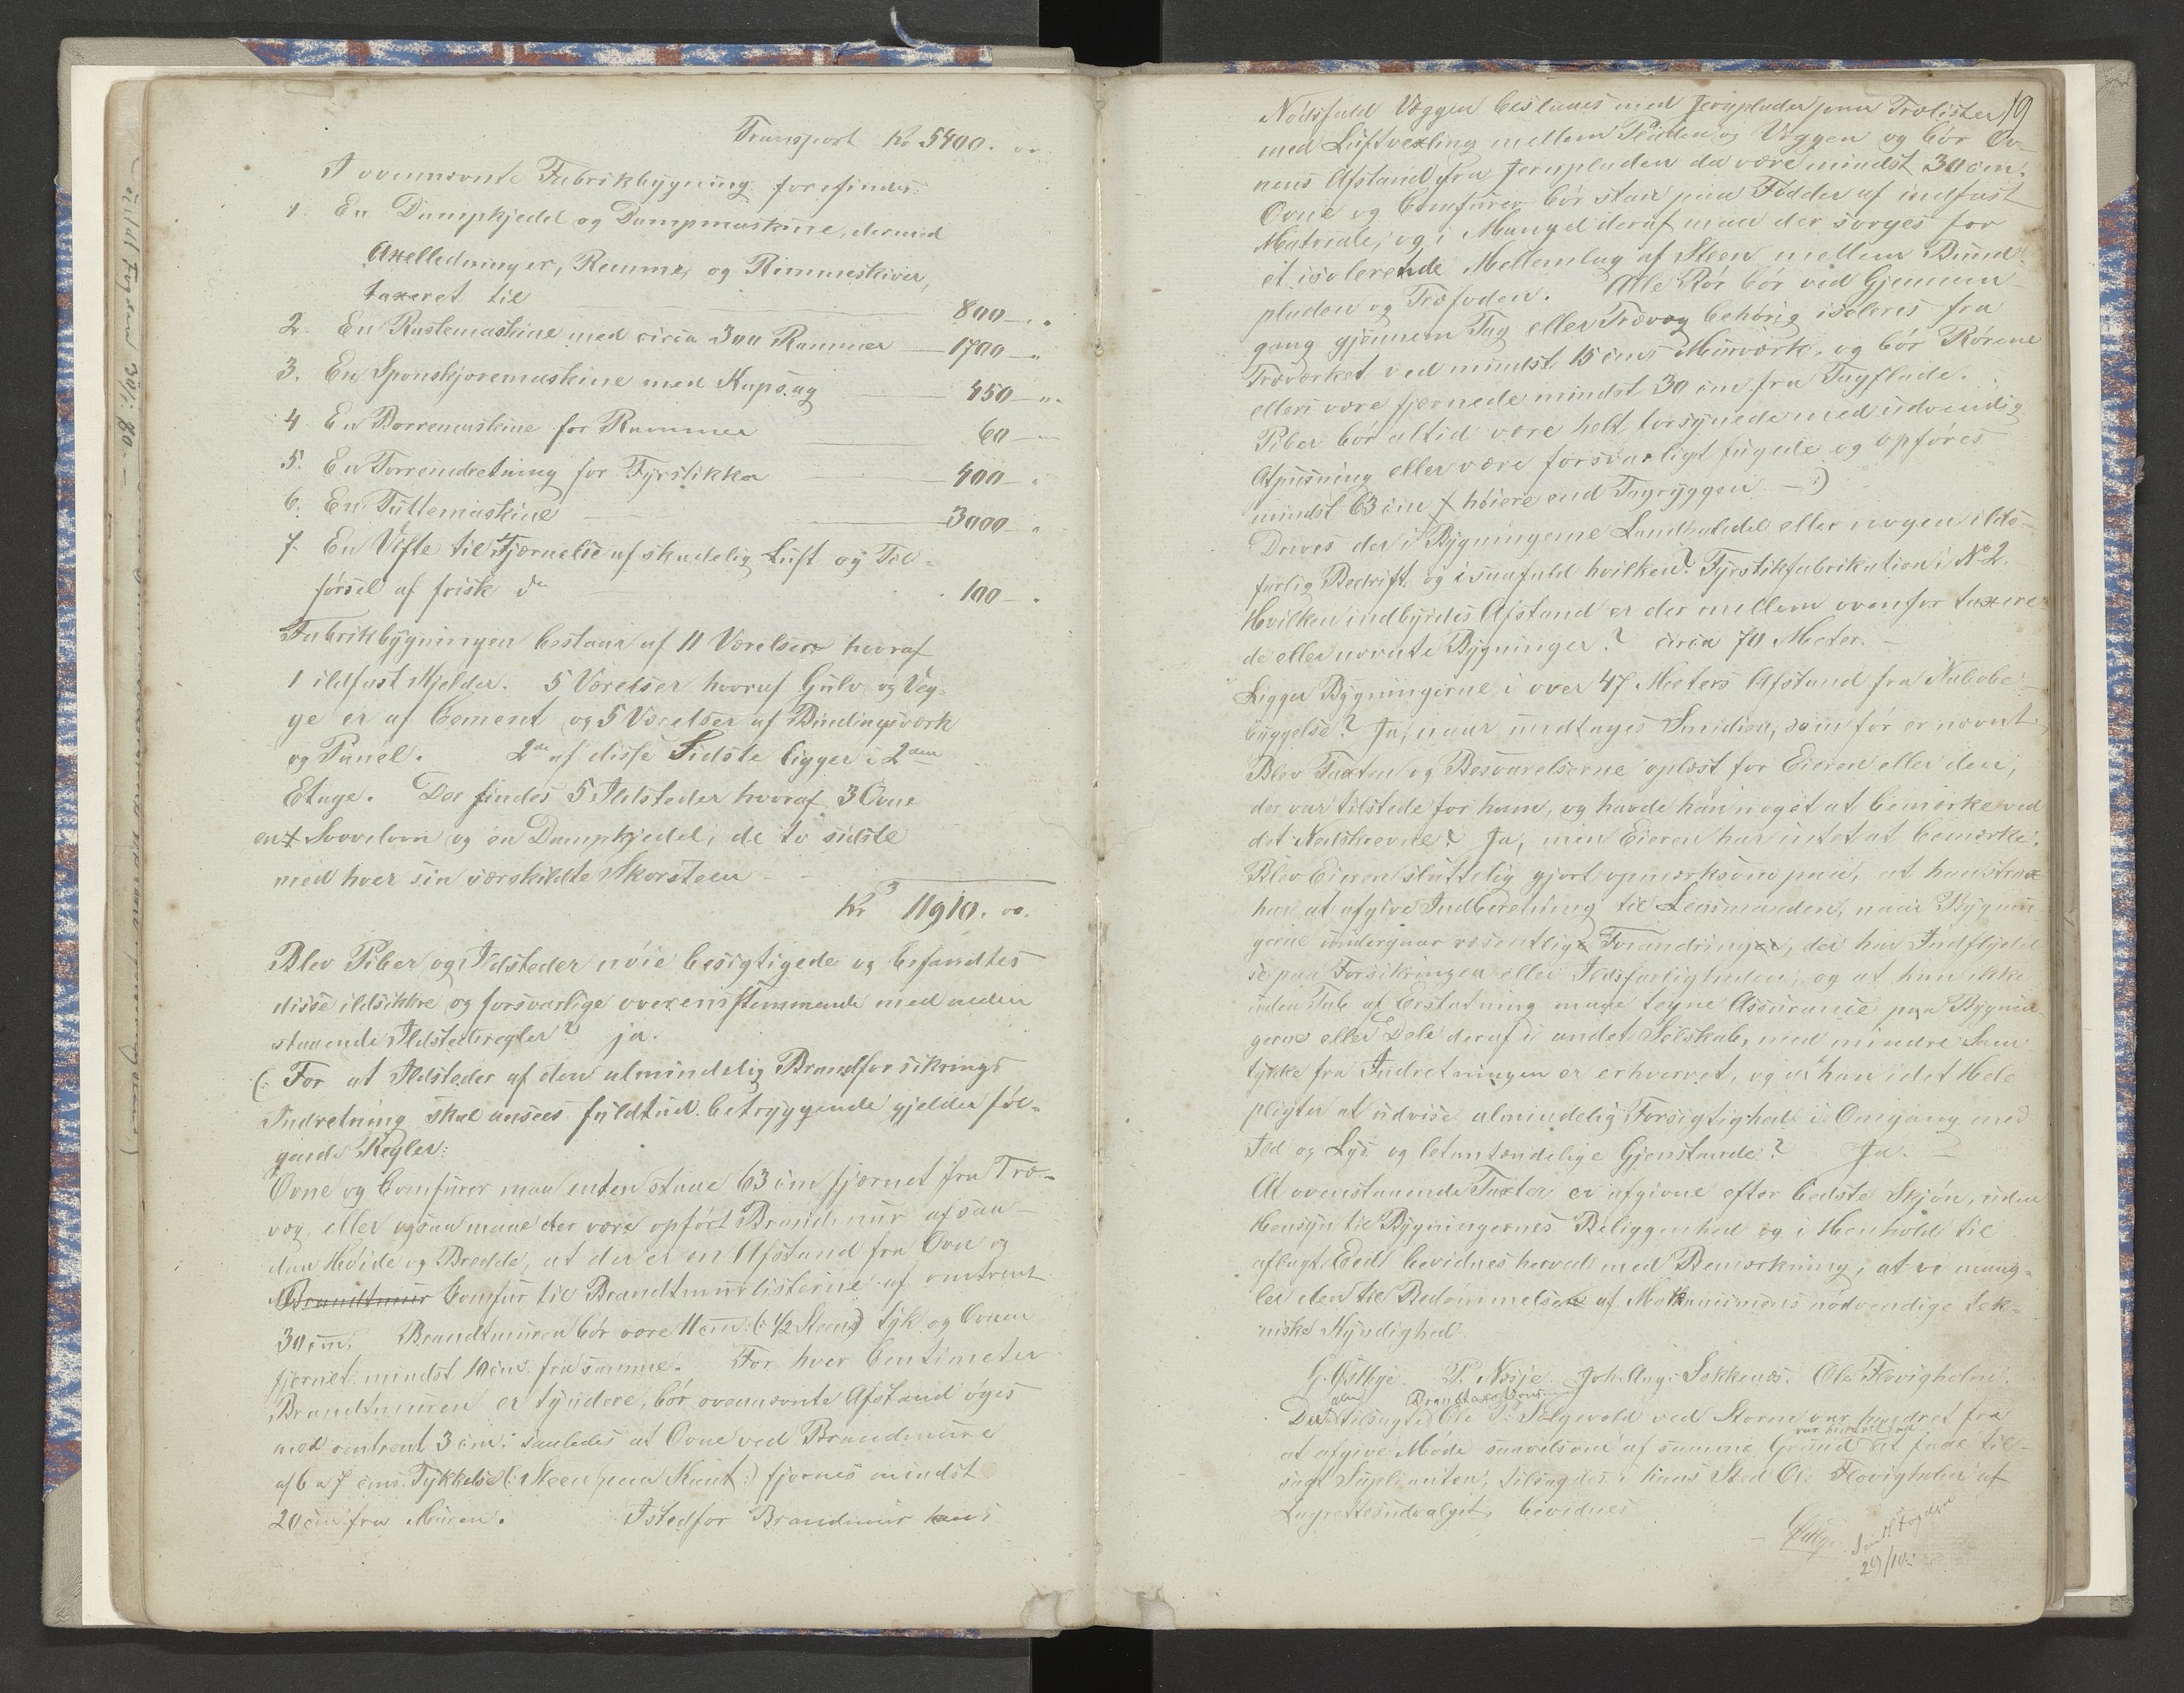 Transport Kr 5400. oo
I ovennævnte Fabrikbygning forefindes:
1. En Dampkjedel og Dampmaskine, dermed
Axelledninger, Remme, og Rimmeskiver,
taxeret til 800 — „
2. En Rastemaskine med circa 300 Rammer 1700 — „
3. En Sponskjøremaskine med Kapsag 450 — „
4. En Borremaskine for Rammer 60 — „
5. En Torreindretning for Fyrstikker 400 — „
6. En Tuttemaskine 3000 — „
7. En Vifte til Fjærnelse af skadelig Luft og Til-
førsel af frisk do 100 — „
Fabrikbygningen bestaar af 11 Værelser hvoraf
1 ildfast Kjelder. 5 Værelser hvoraf Gulv og Væg-
ge er af Cement og 5 Værelser af Bindingsværk
og Panel. 2de af disse Sidste ligger i 2den
Etage. Der findes 5 Ildsteder hvoraf 3 Ovne
en Svovelovn og en Dampkjedel, de to sidste
med hver sin særskildte Skorsteen
Kr 11910. oo.
Blev Piber og Ildsteder nöie besigtigede og befandtes
disse ildsikkre og forsvarlige overensstemmende med neden
staaende Ildstedsregler? ja.
(: For at Ildsteder af den almindelig Brandforsikrings
Indretning skal ansees fuldtud betryggende gjelder föl-
gende Regler:
Ovne og Comfurer maa enten staae 63 cm fjærnet fra Træ-
væg, eller ogsaa maae der være opført Brandmur af saa-
dan Høide og Bredde, at der er en Afstand fra Ovn og
Brandtmur Comfur til Brandtmurlisterne af omtrent
30 cm. Brandtmuren bør være 11 cm (: 1/2 Steens) tyk og Ovnen
fjernet mindst 10 cm. fra samme. For hver Centimeter
Brandtmuren er tyndere, bør ovennævnte Afstand øges
med omtrent 3 cm: saaledes at Ovne ved Brandmure
af 6 a 7 cms. Tykkelse (: Steen paa Kant :) fjernes mindst
20 cm fra Muren. Istedfor Brandmur kan i
19
Nødsfald Væggen beslaaes med Jernplader paa Trælister
med Luftvexling mellem Pladen og Væggen og bør Ov-
nens Afstand fra Jernpladen da være mindst 30 cm.
Ovne og Comfurer bør staae paa Fødder af ildfast
Matriale, og i Mangel deraf maa der sørges for
et isolerende Mellemlag af Steen mellem Bund-
pladen og Træfoden. Alle Rør bør ved Gjennem-
gang gjennem Tag eller Trævæg behørig isoleres fra
Træværket ved mindst 15 cms Murværk, og bør Rørene
ellers være fjernede mindst 30 cm fra Tagflade.
Piber bør altid være helt forsynede med udvendig
Afpusning eller være forsvarligt fugede og opføres
mindst 63 cm høiere end Tagryggen — :)
Drives der i Bygningerne Landhandel eller nogen ilds-
farlig Bedrift og isaafald hvilken? Fyrstikfabrikation i No 2.
Hvilken indbyrdes Afstand er der mellem ovenfor taxere-
de eller nævnte Bygninger? circa 70 Meter.
Ligger Bygningerne i over 47 Meters Afstand fra Nabobe-
byggelse? Ja, naar undtages Smidien, som før er nævnt.
Blev Taxten og Besvarelserne oplæst for Eieren eller den,
der var tilstede for ham, og havde han noget at bemærke ved
det Nedskrevne? Ja, men Eieren har intet at bemærke.
Blev Eieren sluttelig gjort opmærksom paa, at han strax
har at afgive Indberetning til Lensmanden, naar Bygnin
gerne undergaar væsentlige Forandringer, der har Indflydel
se paa Forsikringen eller Ildsfarligheden, og at han ikke
uden Tab af Erstatning maae tegne Assurance paa Bygnin
gerne eller Dele deraf i andet Selskab, med mindre Sam
tykke fra Indretningen er erhvervet, og at han i det Hele
pligter at udvise almindelig Forsigtighed i Omgang med
Ild og Lys og letantændelige Gjenstande? Ja.
At ovenstaaende Taxter er afgivne efter bedste Skjøn, uden
Hensyn til Bygningernes Beliggenhed og i Henhold til
aflagt Eed, bevidnes herved med Bemærkning, at vi mang-
ler den til Bedømmelse af Mekanismens nødvendige tek-
niske Kyndighed.
P. Nesje Joh. Aug. Sekkenes. Ole Flovigholm.
Da den tilsagte Brandtaxationsm Ole P. Solgevold ved Skorne var hindret fra
at afgive Møde saavelsom af samme Grund var hindret fra at faae til-
sagt Suplianten, tilsagdes i hans Sted Ole Flovigholm af
Lagretteudvalget, bevidnes
Sendt Fogden
29/10.